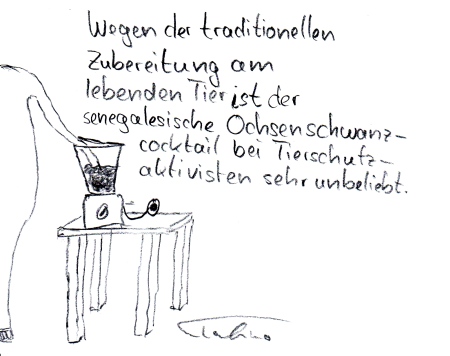 Wegen der traditionellen
Zubereitung am
lebenden Tier ist der
senegalesische Ochsenschwanz-
cocktail bei Tierschutz-
aktivisten sehr unbeliebt.